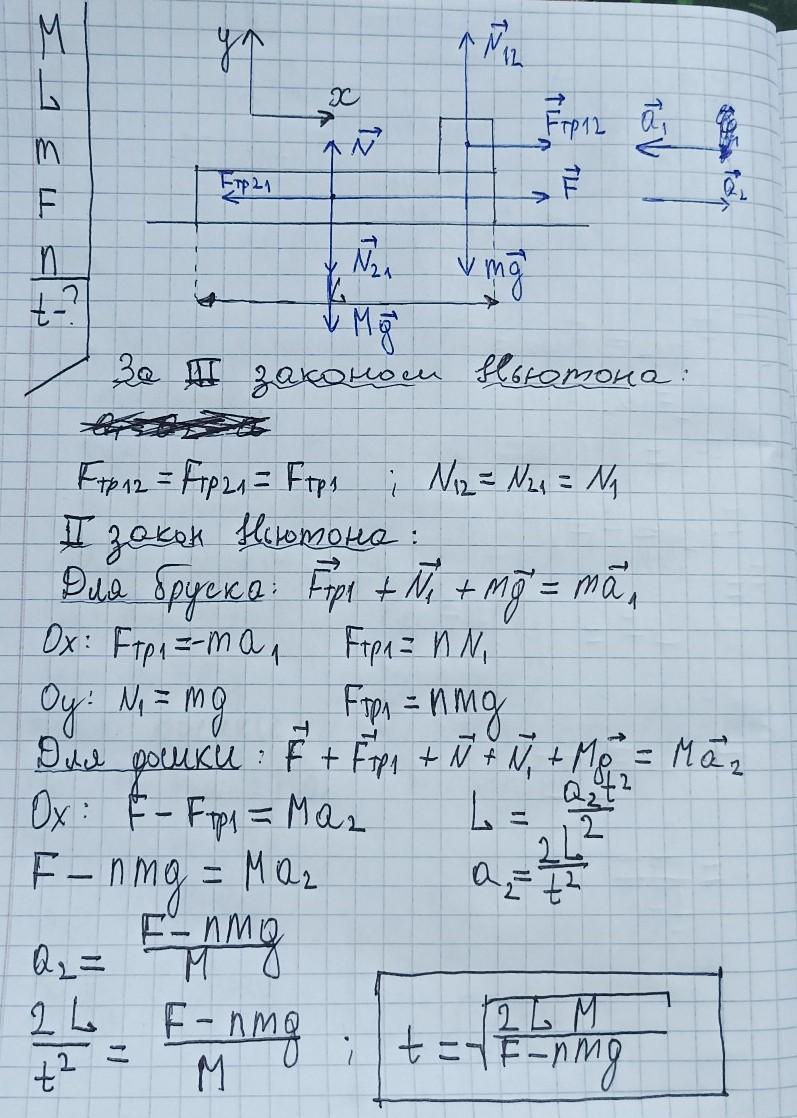 M
L
m
F
n
t-?
y
x
N⃗₁₂
F⃗тр12
a⃗₁
N⃗
Fтр21
F⃗
a⃗₂
N⃗₂₁
mg⃗
L
Mg⃗
За III законом Ньютона:
Fтр12 = Fтр21 = Fтр1 ; N₁₂ = N₂₁ = N₁
II закон Ньютона:
Для бруска: F⃗тр1 + N⃗₁ + mg⃗ = ma⃗₁
Ox: Fтр1 = -ma₁ Fтр1 = nN₁
Oy: N₁ = mg Fтр1 = nmg
Для дошки: F⃗ + F⃗тр1 + N⃗ + N⃗₁ + Mg⃗ = Ma⃗₂
Ox: F - Fтр1 = Ma₂ L = a₂t²/2
F - nmg = Ma₂ a₂ = 2L/t²
a₂ = (F - nmg)/M
2L/t² = (F - nmg)/M ; t = √(2LM/(F - nmg))